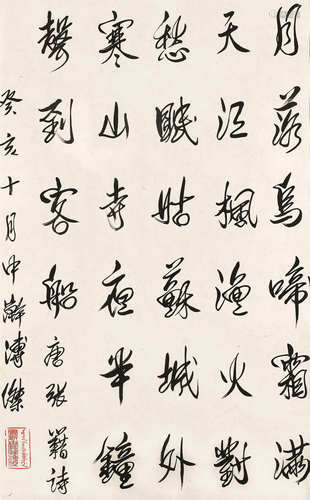 月落烏啼霜滿
天江楓漁火對
愁眠姑蘇城外
寒山寺夜半鐘
聲到客船 唐張籍詩
癸亥十月中澣溥傑